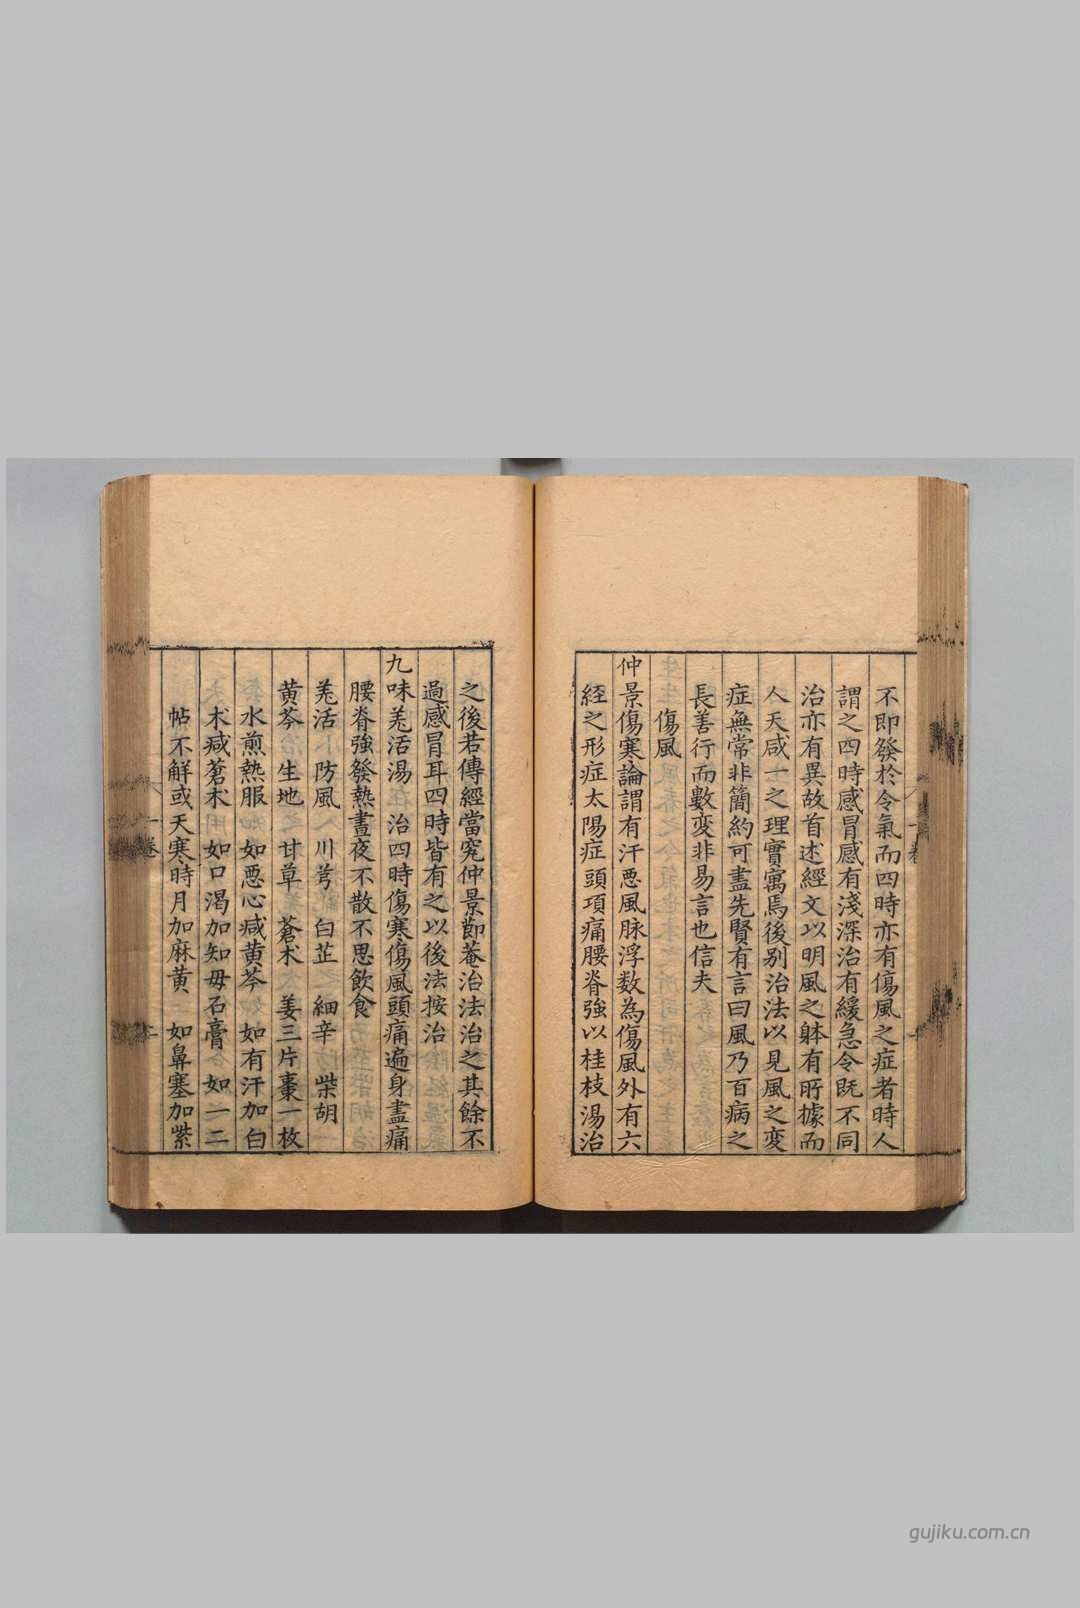 不即發於令氣而四時亦有傷風之症者時人
謂之四時感冒感有淺深治有緩急令既不同
治亦有異故首述經文以明風之躰有所據而
人天咸一之理實寓焉後别治法以見風之変
症無常非簡約可盡先賢有言曰風乃百病之
長善行而數変非易言也信夫
傷風
仲景傷寒論謂有汗惡風脉浮数為傷風外有六
経之形症太陽症頭項痛腰脊強以桂枝湯治
之後若傳經當究仲景節菴治法治之其餘不
過感冒耳四時皆有之以後法按治
九味羌活湯 治四時傷寒傷風頭痛遍身盡痛
腰脊強發熱晝夜不散不思飲食
羌活 防風 川芎 白芷 細辛 柴胡
黄芩 生地 甘草 蒼术 姜三片棗一枚
水煎熱服 如惡心减黄芩 如有汗加白
术减蒼术 如口渴加知母石膏 如一二
帖不解或天寒時月加麻黄 如鼻塞加紫
一卷
一卷
gujiku.com.cn